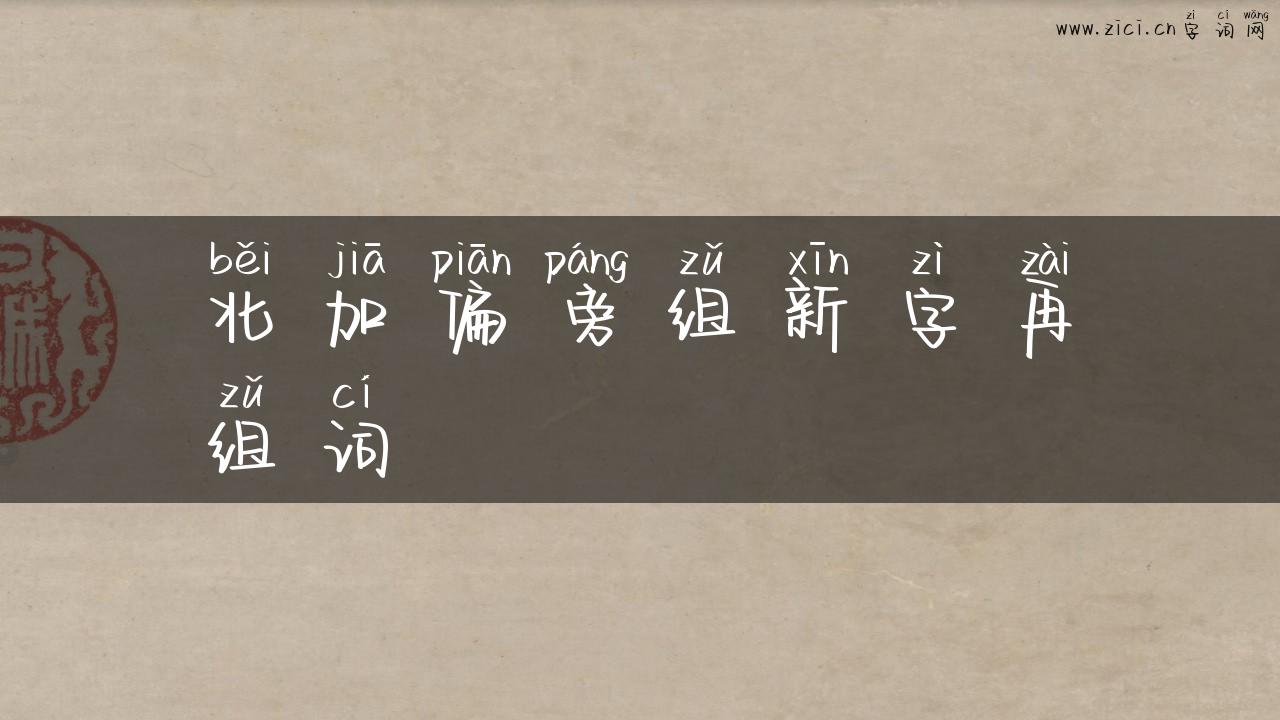 zì cí wǎng
www.zici.cn 字词网
běi jiā piān páng zǔ xīn zì zài
北加偏旁组新字再
zǔ cí
组词